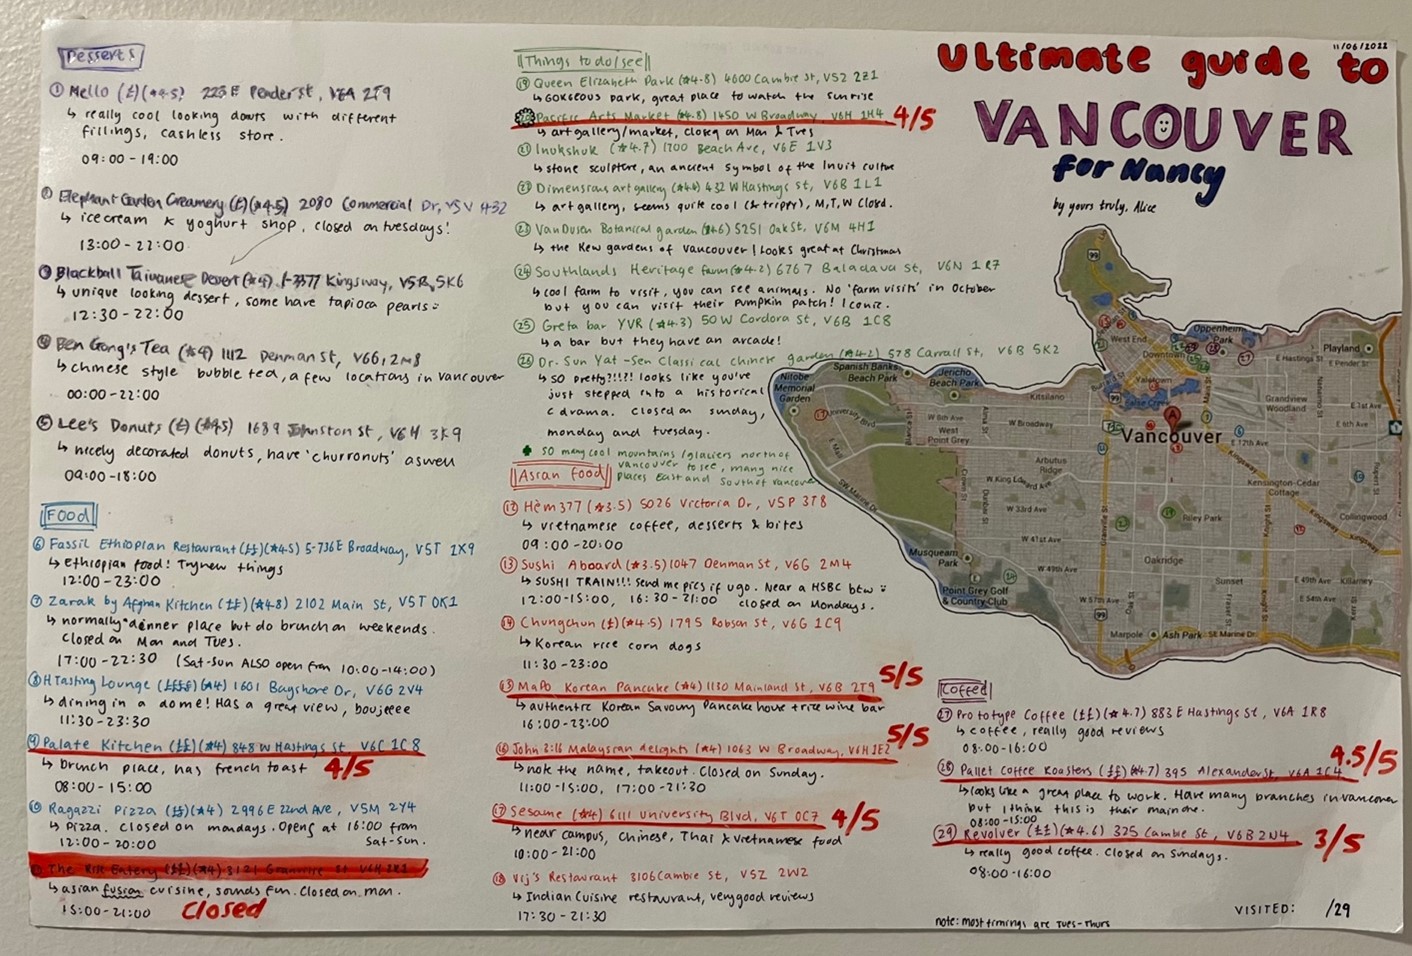 11/06/2022
Ultimate guide to
VANCOUVER
for Nancy
by yours truly, Alice
Desserts
① Mello (£)(★4.5) 223 E Pender st, V6A 2T9
↳ really cool looking donuts with different
fillings, cashless store.
09:00 - 19:00
② Elephant Garden Creamery (£)(★4.5) 2080 Commercial Dr, V5V 4B2
↳ icecream & yoghurt shop, closed on tuesdays!
13:00 - 22:00
③ Blackball Taiwanese Dessert (★4) 1-3377 Kingsway, V5R 5K6
↳ unique looking dessert, some have tapioca pearls :
12:30 - 22:00
④ Ben Gong's Tea (★4) 1112 Denman St, V6G 2M8
↳ chinese style bubble tea, a few locations in vancouver
00:00 - 22:00
⑤ Lee's Donuts (£)(★4.5) 1689 Johnston St, V6H 3K9
↳ nicely decorated donuts, have 'churronuts' aswell
09:00 - 18:00
Food
⑥ Fassil Ethiopian Restaurant (££)(★4.5) 5-736 E Broadway, V5T 1X9
↳ Ethiopian food! Try new things
12:00 - 23:00
⑦ Zarak by Afghan Kitchen (££)(★4.8) 2102 Main St, V5T 0K1
↳ normally dinner place but do brunch on weekends.
Closed on Mon and Tues.
17:00 - 22:30 (Sat-Sun ALSO open from 10:00-14:00)
⑧ H Tasting Lounge (££££)(★4) 1601 Bayshore Dr, V6G 2V4
↳ dining in a dome! Has a great view, boujeee
11:30 - 23:30
⑨ Palate Kitchen (££)(★4) 848 W Hastings St V6C 1C8
↳ brunch place, has french toast 4/5
08:00 - 15:00
⑩ Ragazzi Pizza (££)(★4) 2996 E 22nd Ave, V5M 2Y4
↳ pizza. closed on mondays. Opens at 16:00 from
12:00 - 20:00 Sat-Sun.
The Eatery (££)(★4) 3121 Granville St V6H
↳ asian fusion cuisine, sounds fun. Closed on mon.
15:00 - 21:00 Closed
Things to do/see
⑲ Queen Elizabeth Park (★4.8) 4600 Cambie St, V5Z 2Z1
↳ GORGEOUS park, great place to watch the sunrise
Pacific Arts Market (★4.8) 1450 W Broadway V6H 1H4 4/5
↳ art gallery/market, closed on Mon & Tues
㉑ Inukshuk (★4.7) 1700 Beach Ave, V6E 1V3
↳ stone sculpture, an ancient symbol of the Inuit culture
㉒ Dimensions art gallery (★4.6) 432 W Hastings St, V6B 1L1
↳ art gallery, seems quite cool (& trippy), M,T,W Closed.
㉓ VanDusen Botanical garden (★4.6) 5251 Oak St, V6M 4H1
↳ the Kew gardens of Vancouver / Looks great at Christmas
㉔ Southlands Heritage farm (★4.2) 6767 Balaclava St, V6N 1R7
↳ cool farm to visit, you can see animals. No 'farm visits' in October
but you can visit their pumpkin patch! Iconic.
㉕ Greta bar YVR (★4.3) 50 W Cordova St, V6B 1C8
↳ a bar but they have an arcade!
㉖ Dr. Sun Yat-Sen Classical chinese garden (★4.2) 578 Carrall St, V6B 5K2
↳ SO pretty!!!!! looks like you've
just stepped into a historical
c drama. closed on sunday,
monday and tuesday.
SO many cool mountains/glaciers north of
vancouver to see, many nice
places East and South of vancouver
Asian food
⑫ Hèm 377 (★3.5) 5026 Victoria Dr, V5P 3T8
↳ vietnamese coffee, desserts & bites
09:00 - 20:00
⑬ Sushi Aboard (★3.5) 1047 Denman St, V6G 2M4
↳ SUSHI TRAIN!!! Send me pics if u go. Near a HSBC btw :
12:00 - 15:00, 16:30 - 21:00 closed on Mondays.
⑭ Chungchun (£)(★4.5) 1795 Robson St, V6G 1C9
↳ Korean rice corn dogs
11:30 - 23:00
⑮ Mapo Korean Pancake (★4) 1130 Mainland St, V6B 2T9 5/5
↳ authentic Korean Savoury Pancake house & rice wine bar
16:00 - 23:00
⑯ John 3:16 Malaysian delights (★4) 1063 W Broadway, V6H 1E2 5/5
↳ note the name, takeout. Closed on Sunday.
11:00 - 15:00, 17:00 - 21:30
⑰ Sesame (★4) 6111 University Blvd, V6T 0C7 4/5
↳ near campus, Chinese, Thai & vietnamese food
10:00 - 21:00
⑱ Vij's Restaurant 3106 Cambie St, V5Z 2W2
↳ Indian Cuisine restaurant, very good reviews
17:30 - 21:30
99
West End
Downtown
Yaletown
False Creek
Oppenheimer
Park
E Hastings St
Playland
E Pender St
Spanish Banks
Beach Park
Jericho
Beach Park
Nitobe
Memorial
Garden
Kitsilano
Grandview
Woodland
E 1st Ave
W 8th Ave
W Broadway
E 6th Ave
University Blvd
West
Point Grey
A
Vancouver
E 12th Ave
Arbutus
Ridge
Kingsway
Kensington-Cedar
Cottage
W King Edward Ave
SW Marine Dr
W 33rd Ave
Riley Park
Collingwood
W 41st Ave
Kingsway
Musqueam
Park
Oakridge
W 49th Ave
Sunset
E 49th Ave
Killarney
Point Grey Golf
& Country Club
W 57th Ave
E 54th Ave
99
Marpole
Ash Park
SE Marine Dr
Coffee
㉗ Prototype Coffee (££)(★4.7) 883 E Hastings St, V6A 1R8
↳ coffee, really good reviews
08:00 - 16:00
㉘ Pallet Coffee Roasters (££)(★4.7) 395 Alexander St, V6A 1C4 4.5/5
↳ looks like a great place to work. Have many branches in vancouver
but I think this is their main one.
08:00 - 15:00
㉙ Revolver (££)(★4.6) 325 Cambie St, V6B 2N4 3/5
↳ really good coffee. Closed on Sundays.
08:00 - 16:00
VISITED: /29
note: most timings are Tues-Thurs